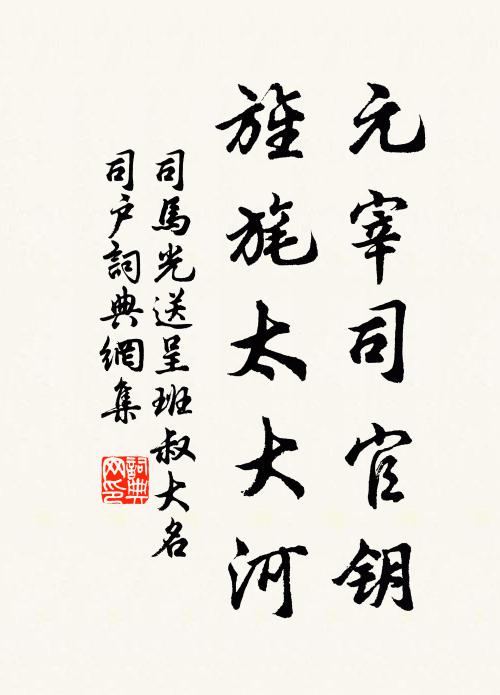 元宰司官钥
旌旄太大河
司馬光送呈班叔大名
司户詞典網集
詞典网印